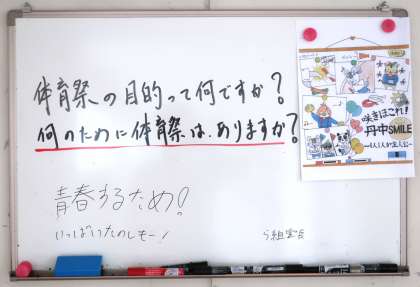 体育祭の目的って何ですか?
何のために体育祭は、ありますか?
青春するため!
いっぱいたのしもー!
咲きほこれ!
丹中SMILE
〜1人1人が主人公〜